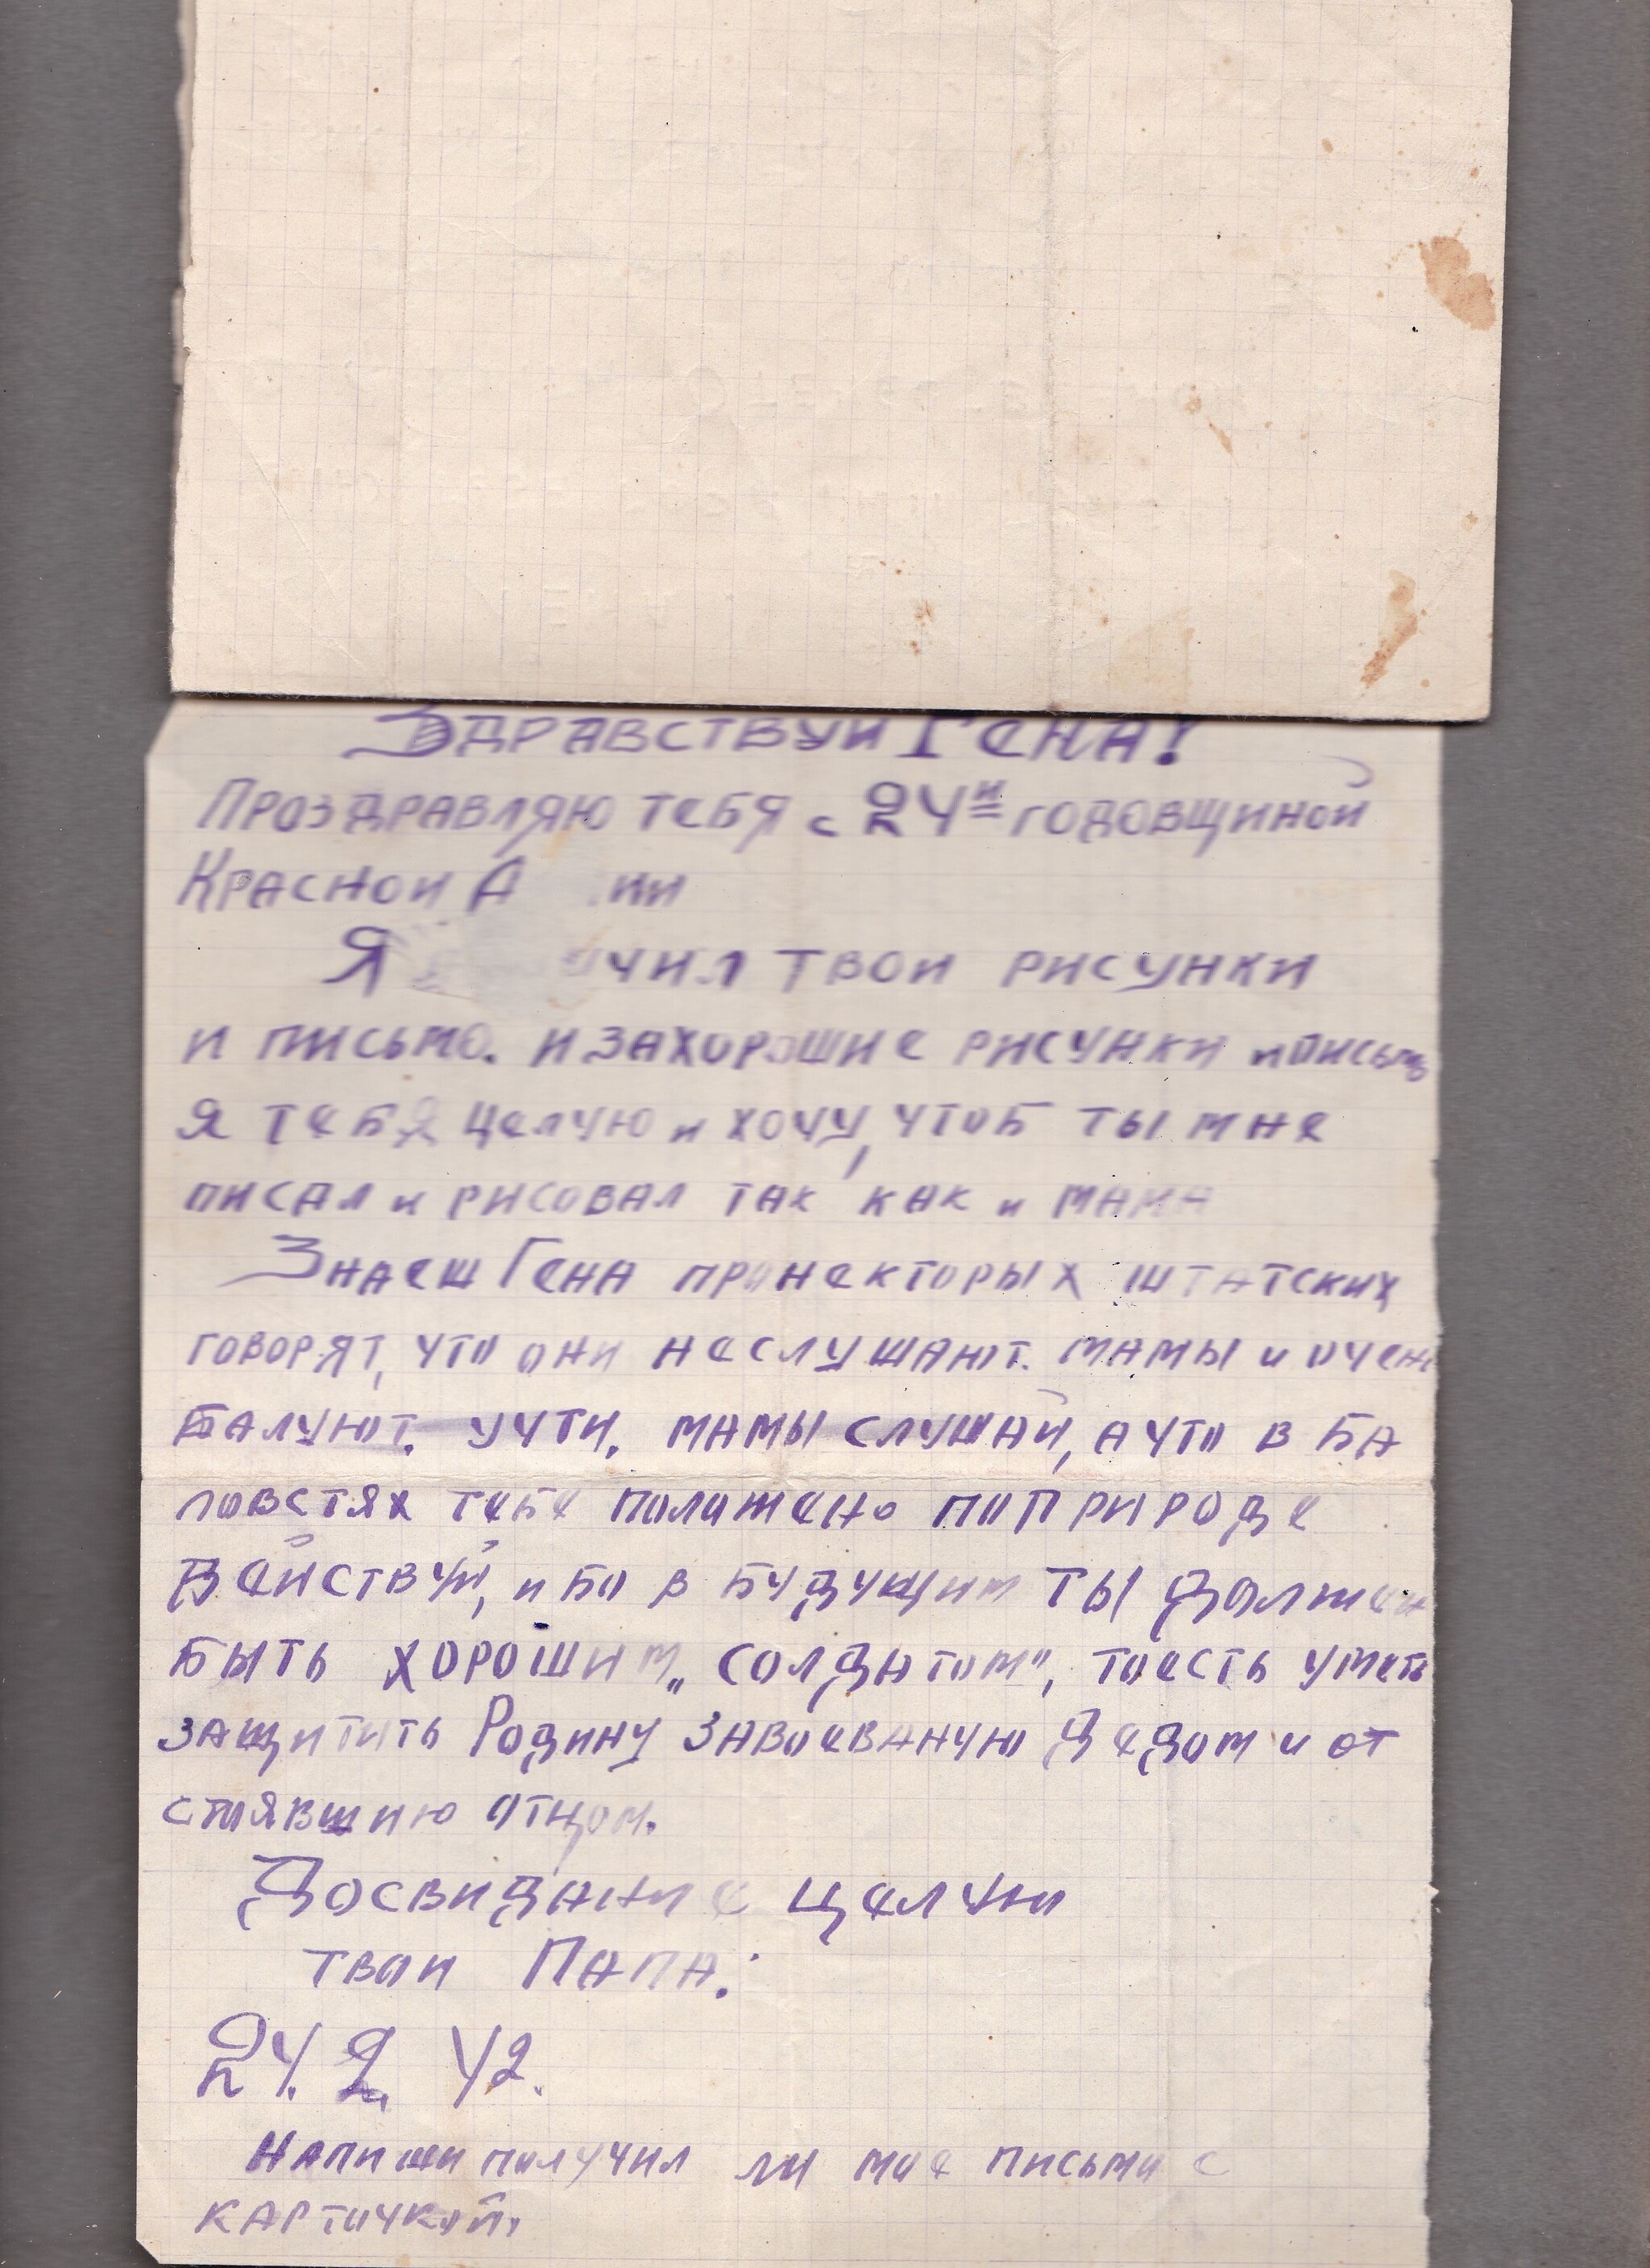 Здравствуй Гена!
Проздравляю тебя с 24й годовщиной
Красной
Я твои рисунки
и письмо. И захорошие рисунки иписьмо
я тебя целую и хочу, чтоб ты мне
писал и рисовал так как и мама
Знаеш Гена пронекторых штатских
говорят, что они неслушают. мамы и очень
балуют. учти. мамы слушай, а что в ба
ловстях тебе положено поприроде
действуй, и бо в будущим ты должен
быть хорошим „солдатом", тоесть уметь
защитить Родину завоеваную дедом и от
стоявшию отцом.
Досвидание целую
твой Папа.
24. 2. 42.
Напиши получил ли мое письмо с
карточкой.